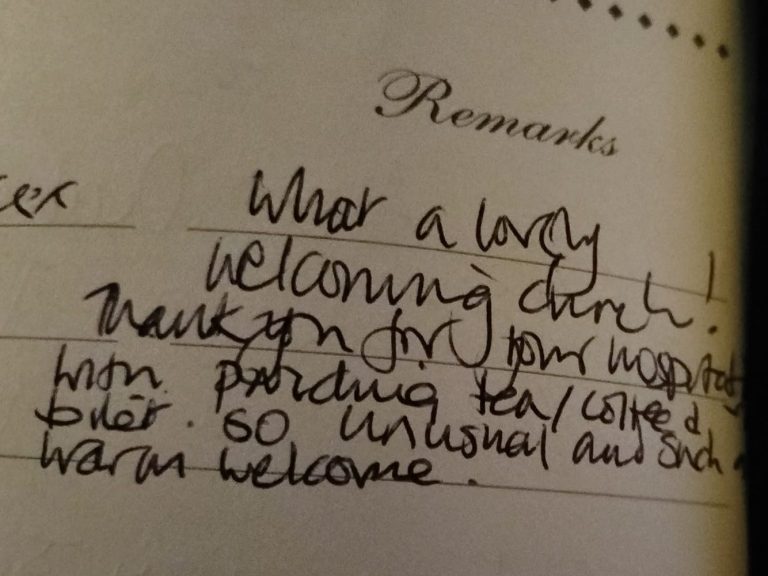 Remarks
What a lovely
welcoming church!
Thank you for your
with providing tea/coffee &
toilet. So unusual and such
warm welcome.